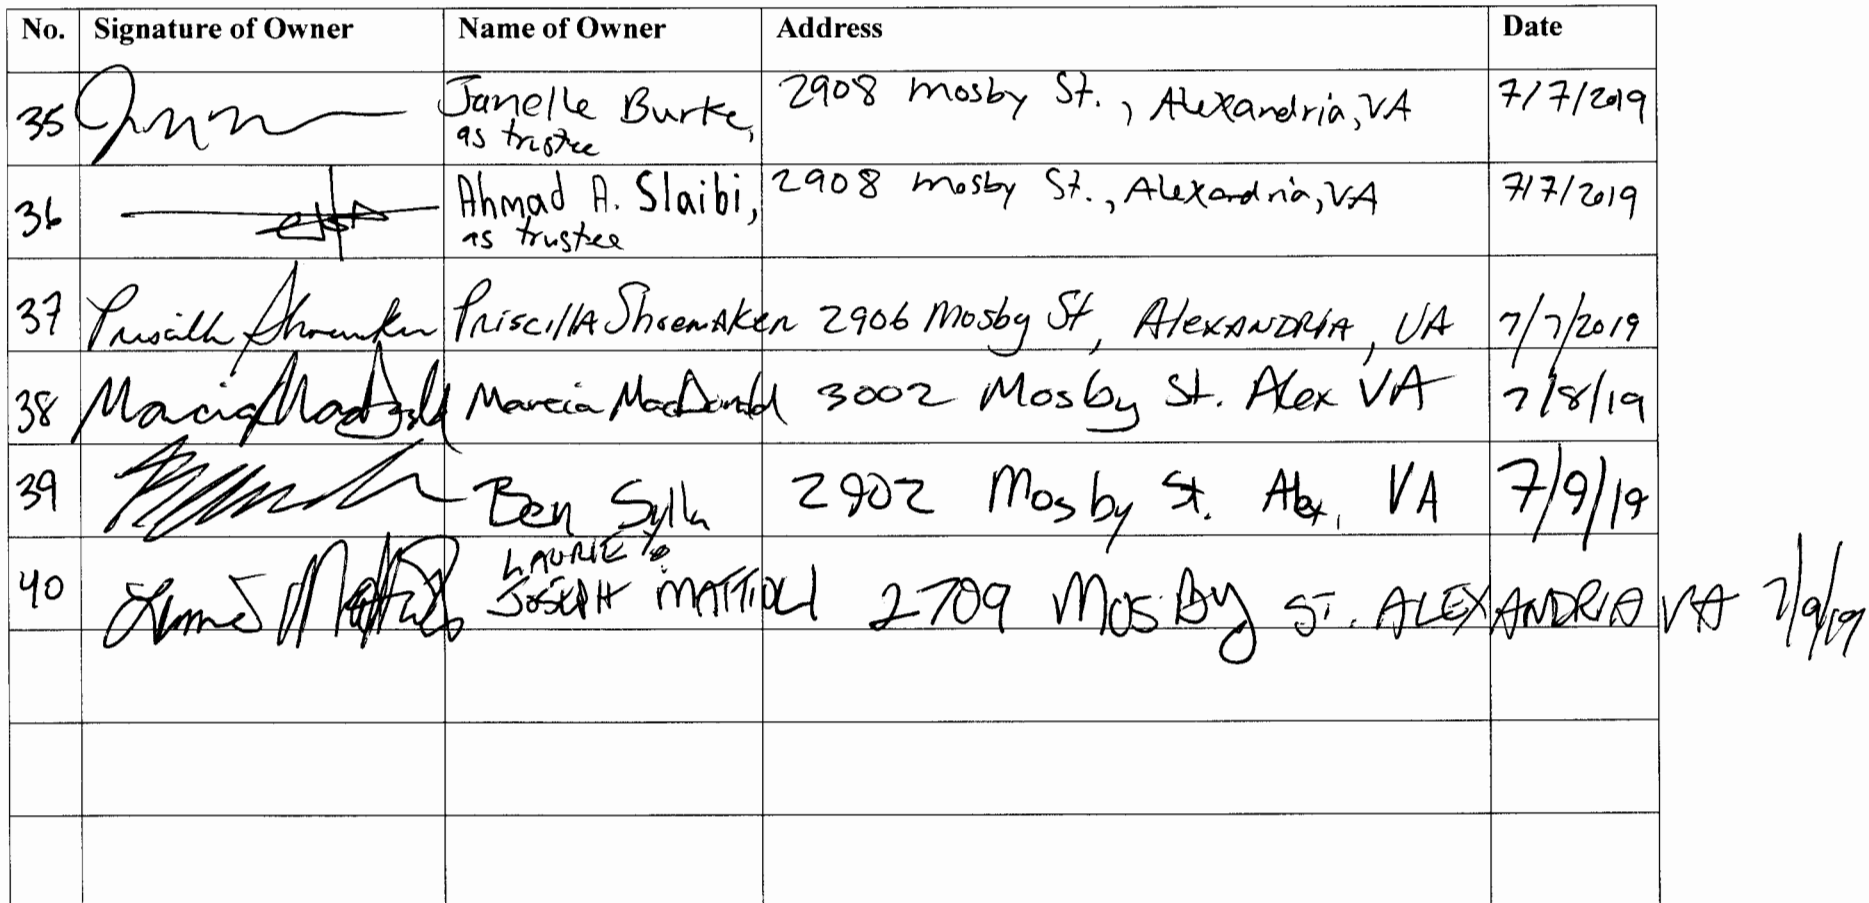 No. Signature of Owner Name of Owner Address Date
35 Janelle Burke, 2908 Mosby St., Alexandria, VA 7/7/2019
as trustee
36 Ahmad A. Slaibi, 2908 Mosby St., Alexandria, VA 7/7/2019
as trustee
37 Priscilla Shoemaker Priscilla Shoemaker 2906 Mosby St, Alexandria, VA 7/7/2019
38 Marcia MacDonald Marcia MacDonald 3002 Mosby St. Alex VA 7/8/19
39 Ben Sylla 2902 Mosby St. Alex, VA 7/9/19
LAURIE &
40 JOSEPH MATTIOLI 2709 MOSBY ST. ALEXANDRIA VA 7/9/19